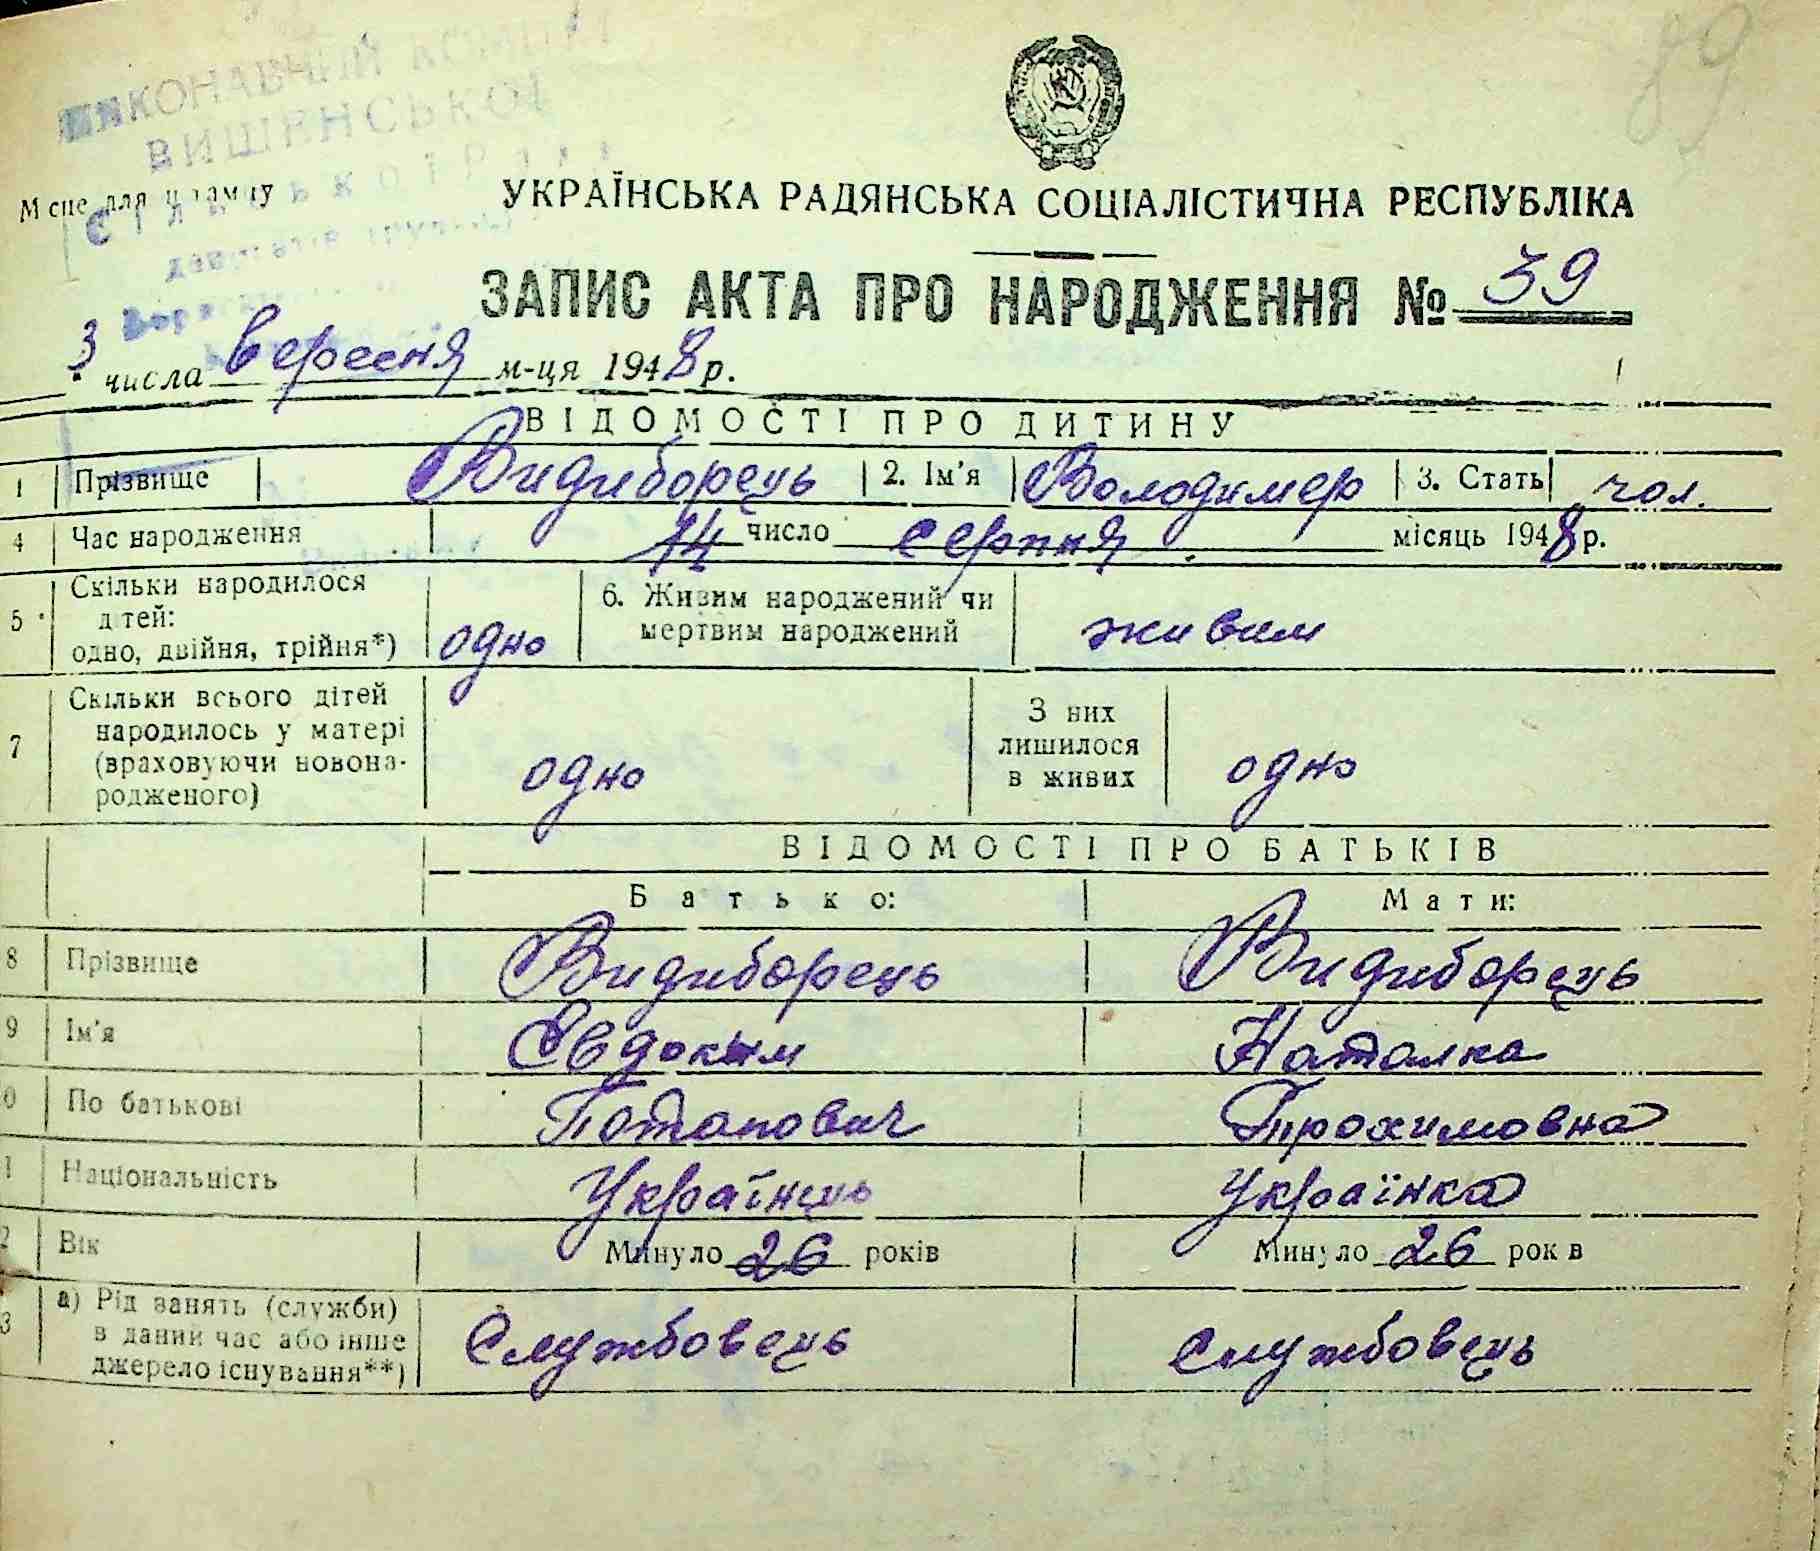 89
КОНАВЧИЙ КОМІТЕТ
ВИШЕНСЬКОЇ
Місце для штампу
УКРАЇНСЬКА РАДЯНСЬКА СОЦІАЛІСТИЧНА РЕСПУБЛІКА
ЗАПИС АКТА ПРО НАРОДЖЕННЯ № 39
3 числа вересня м-ця 1948 р.
ВІДОМОСТІ ПРО ДИТИНУ
1 Прізвище Видиборець 2. Ім'я Володимер 3. Стать чол.
4 Час народження 14 число серпня місяць 1948 р.
5 Скільки народилося дітей: одно, двійня, трійня*) одно 6. Живим народжений чи мертвим народжений живим
7 Скільки всього дітей народилось у матері (враховуючи новона-родженого) одно З них лишилося в живих одно
ВІДОМОСТІ ПРО БАТЬКІВ
Батько: Мати:
8 Прізвище Видиборець Видиборець
9 Ім'я Євдоким Наталка
0 По батькові Потапович Трохимовна
1 Національність Українець Українка
2 Вік Минуло 26 років Минуло 26 років
3 а) Рід занять (служби) в даний час або інше джерело існування**) Службовець службовець